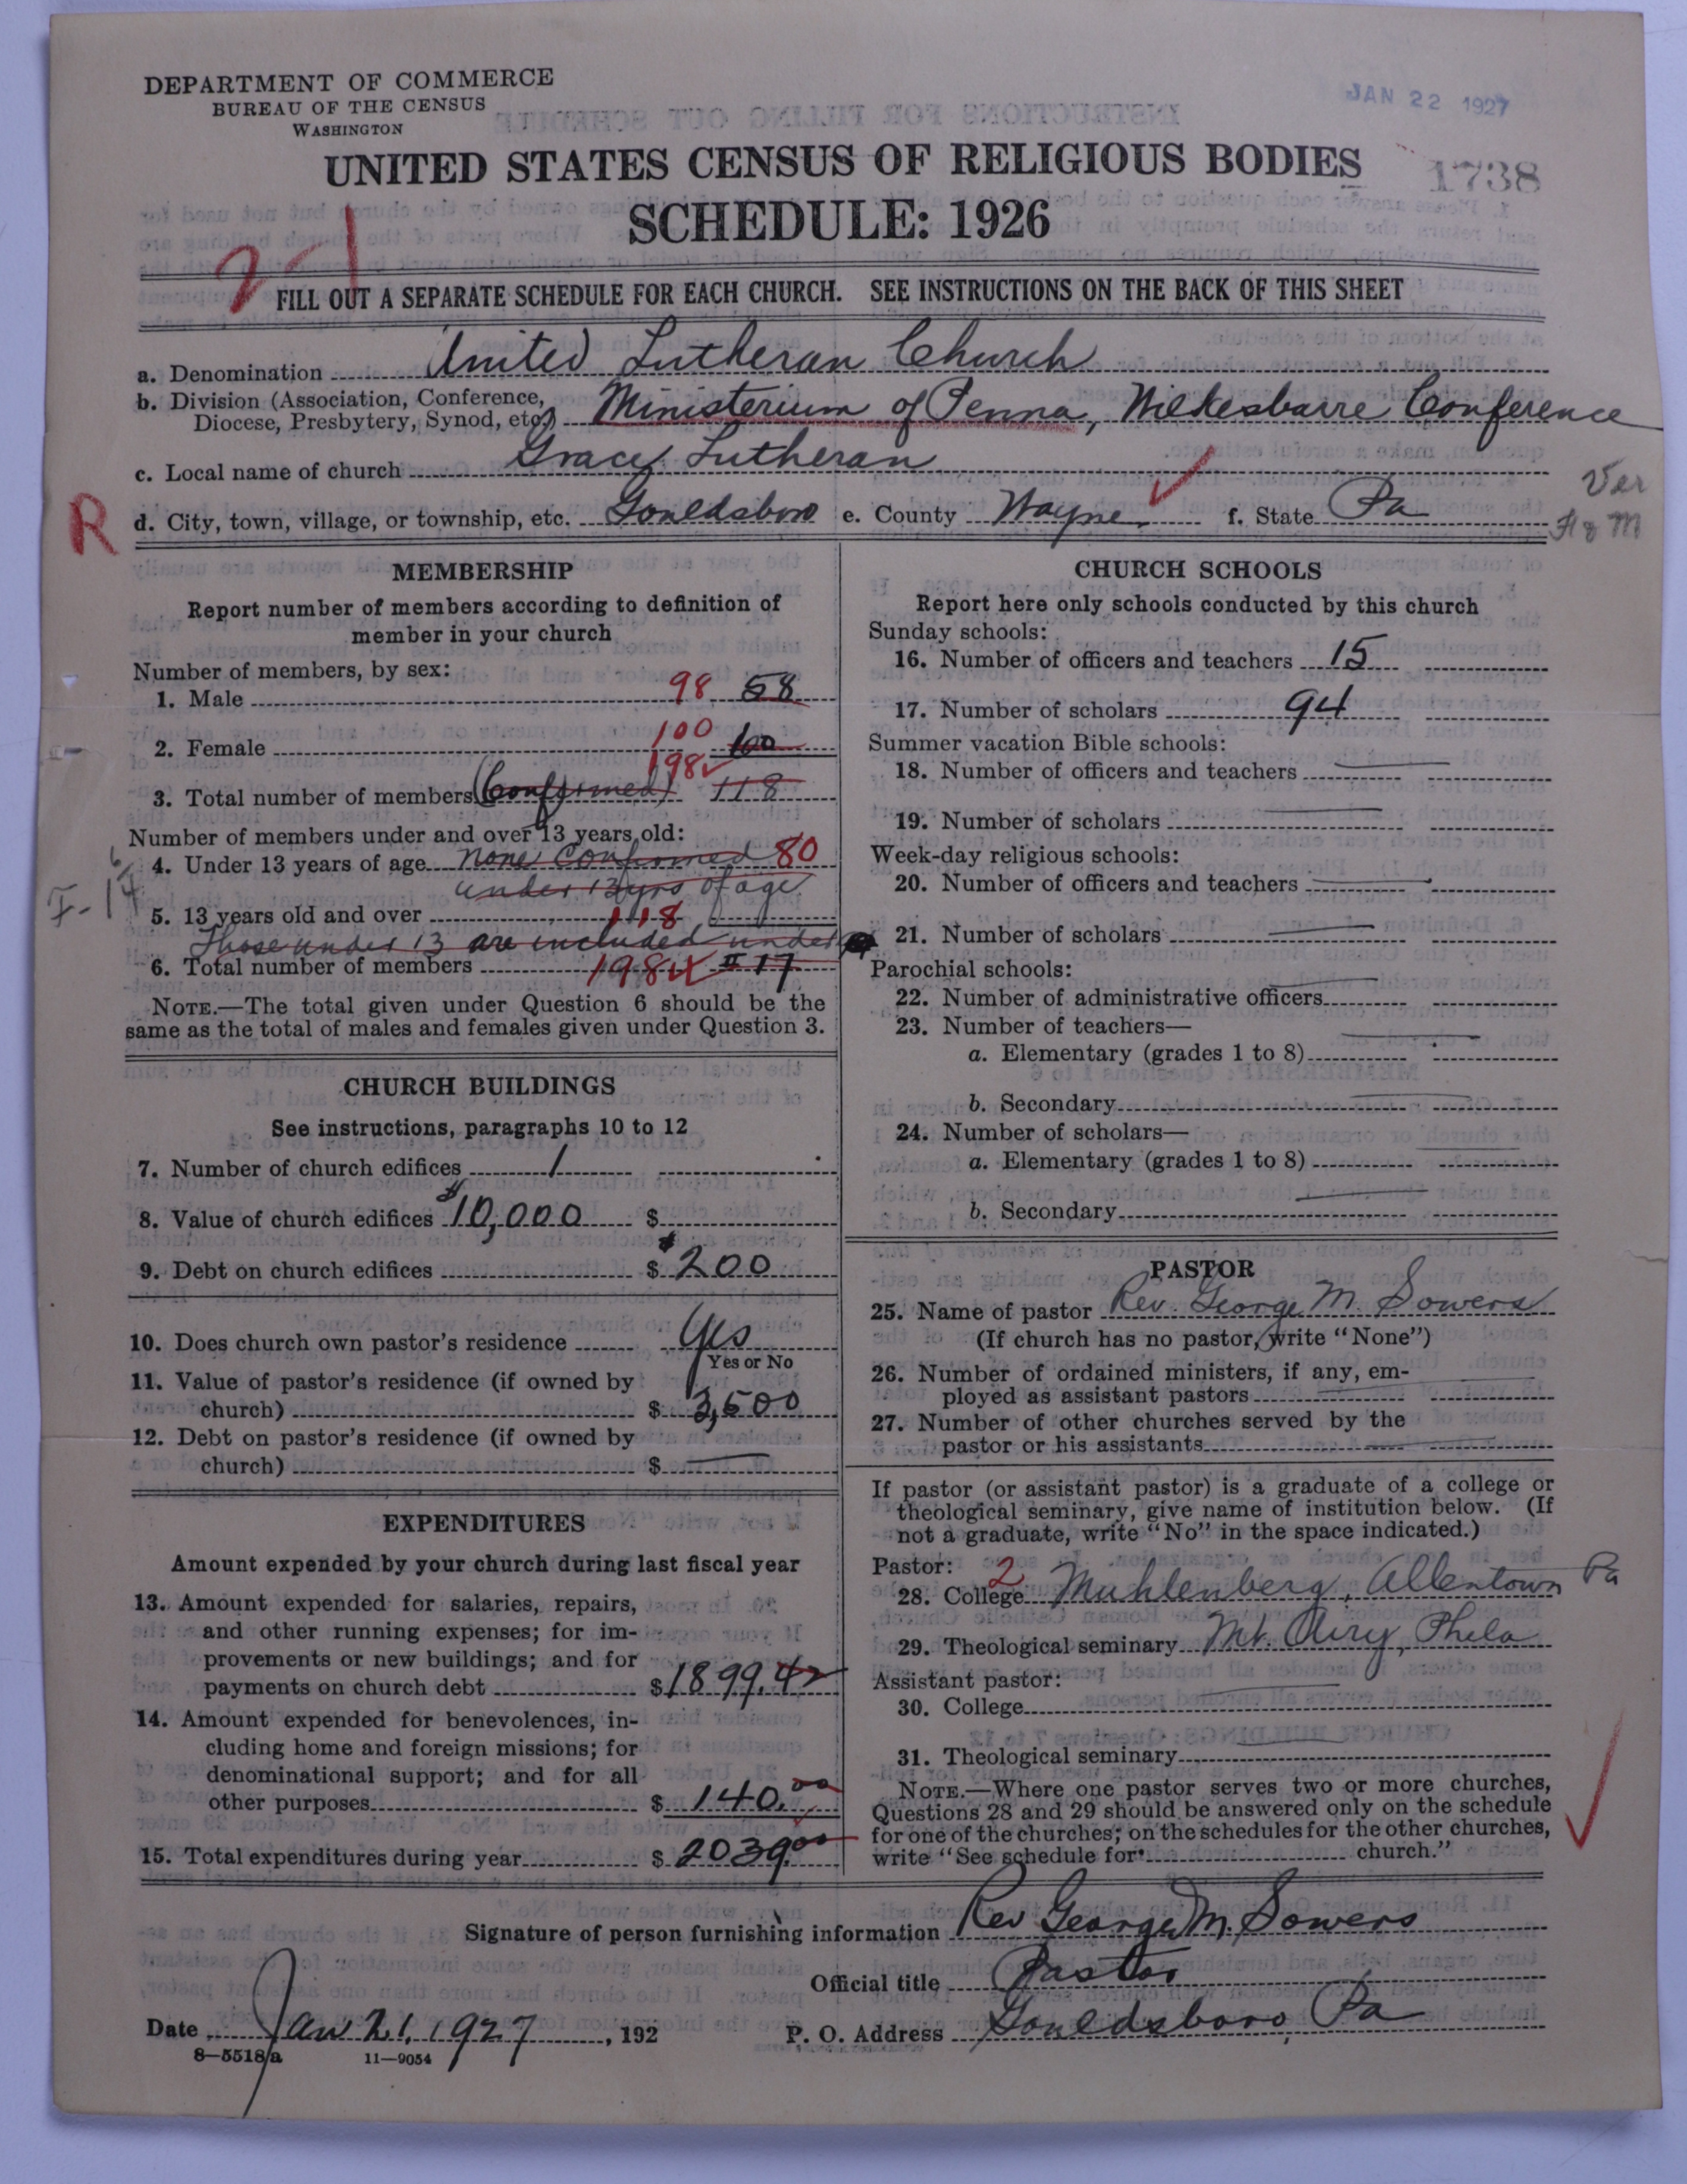 DEPARTMENT OF COMMERCE
BUREAU OF THE CENSUS
WASHINGTON
JAN 22 1927
UNITED STATES CENSUS OF RELIGIOUS BODIES
1738
SCHEDULE: 1926
FILL OUT A SEPARATE SCHEDULE FOR EACH CHURCH. SEE INSTRUCTIONS ON THE BACK OF THIS SHEET
a. Denomination United Lutheran Church
b. Division (Association, Conference,
Diocese, Presbytery, Synod, etc.) Ministerium of Penna, Wilkesbarre Conference
c. Local name of church Grace Lutheran
R
d. City, town, village, or township, etc. Gouldsboro e. County Wayne f. State Pa
Ver
MEMBERSHIP
Report number of members according to definition of
member in your church
Number of members, by sex:
1. Male 98 58
2. Female 100 60
198
3. Total number of members (Confirmed) 118
Number of members under and over 13 years old:
4. Under 13 years of age None Confirmed 80
under 13 yrs of age
5. 13 years old and over 118
Those under 13 are included under
6. Total number of members 198 # 17
NOTE.—The total given under Question 6 should be the
same as the total of males and females given under Question 3.
CHURCH BUILDINGS
See instructions, paragraphs 10 to 12
7. Number of church edifices 1
8. Value of church edifices $10,000 $
9. Debt on church edifices $ $200
10. Does church own pastor's residence Yes
Yes or No
11. Value of pastor's residence (if owned by
church) $ 3,500
12. Debt on pastor's residence (if owned by
church) $
EXPENDITURES
Amount expended by your church during last fiscal year
13. Amount expended for salaries, repairs,
and other running expenses; for im-
provements or new buildings; and for
payments on church debt $1899.42
14. Amount expended for benevolences, in-
cluding home and foreign missions; for
denominational support; and for all
other purposes $ 140.00
15. Total expenditures during year $ 2039.00
CHURCH SCHOOLS
Report here only schools conducted by this church
Sunday schools:
16. Number of officers and teachers 15
17. Number of scholars 94
Summer vacation Bible schools:
18. Number of officers and teachers
19. Number of scholars
Week-day religious schools:
20. Number of officers and teachers
21. Number of scholars
Parochial schools:
22. Number of administrative officers
23. Number of teachers—
a. Elementary (grades 1 to 8)
b. Secondary
24. Number of scholars—
a. Elementary (grades 1 to 8)
b. Secondary
PASTOR
25. Name of pastor Rev. George M. Sowers
(If church has no pastor, write "None")
26. Number of ordained ministers, if any, em-
ployed as assistant pastors
27. Number of other churches served by the
pastor or his assistants
If pastor (or assistant pastor) is a graduate of a college or
theological seminary, give name of institution below. (If
not a graduate, write "No" in the space indicated.)
Pastor: 2
28. College Muhlenberg, Allentown Pa
29. Theological seminary Mt. Airy, Phila
Assistant pastor:
30. College
31. Theological seminary
NOTE.—Where one pastor serves two or more churches,
Questions 28 and 29 should be answered only on the schedule
for one of the churches; on the schedules for the other churches,
write "See schedule for church."
Signature of person furnishing information Rev George M. Sowers
Official title Pastor
Date Jan 21, 1927, 192
P. O. Address Gouldsboro, Pa
8—5518a 11—9054